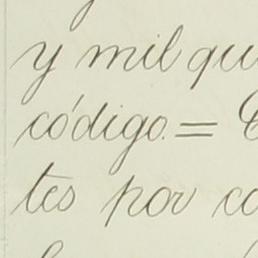 y mil qu
código. =
tes por co